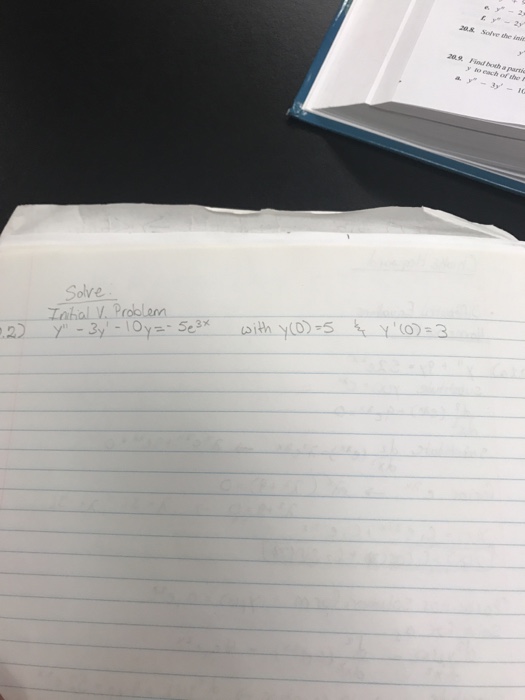 e. y'' − 2y
f. y'' − 2y
20.8. Solve the init
y
20.9. Find both a partic
y to each of the
a. y'' − 3y' − 10
Solve
Initial V. Problem
.2) y'' - 3y' - 10y = - 5e^3x with y(0)=5 & y'(0)=3